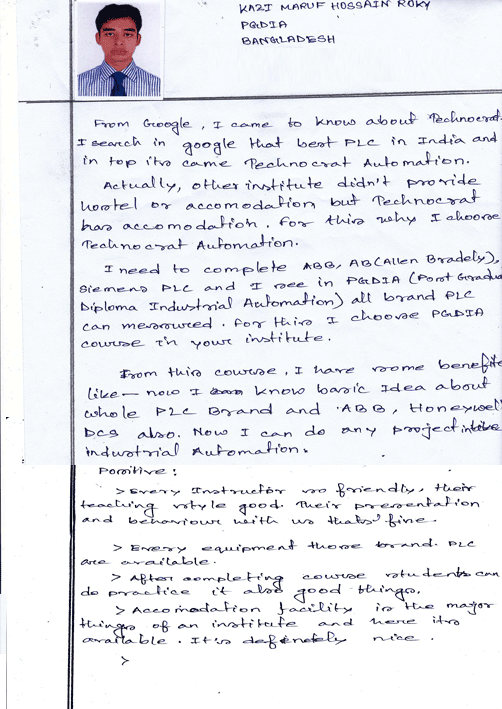 KAZI MARUF HOSSAIN ROKY
PGDIA
BANGLADESH
From Google, I came to know about Technocrat.
I search in google that best PLC in India and
in top its came Technocrat Automation.
Actually, other institute didn't provide
hostel or accomodation but Technocrat
has accomodation. For this why I choose
Technocrat Automation.
I need to complete ABB, AB(Allen Bradely),
Siemens PLC and I see in PGDIA (Post Gradua
Diploma Industrial Automation) all brand PLC
can measured. For this I choose PGDIA
course in your institute.
From this course, I have some benefite
like— now I know basic Idea about
whole PLC Brand and ABB, Honeywell
DCS also. Now I can do any project
industrial Automation.
Positive:
> Every Instructor so friendly, their
teaching style good. Their presentation
and behaviour with us thats' fine.
> Every equipment those brand PLC
are available.
> After completing course students can
do practice it also good things.
> Accomodation facility is the major
things of an institute and here its
available. It's definetely nice.
>